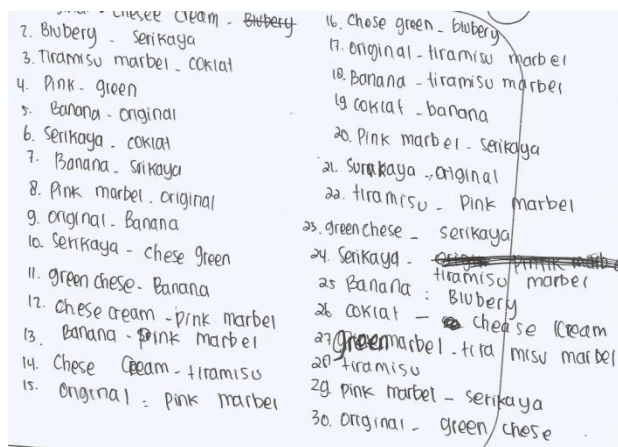 chesee cream - Blubery
2. Blubery - serikaya
3. Tiramisu marbel - coklat
4. Pink - green
5. Banana - original
6. Serikaya - coklat
7. Banana - srikaya
8. Pink marbel - original
9. original - Banana
10. Serikaya - chese green
11. green chese - Banana
12. chese cream - pink marbel
13. Banana - pink marbel
14. Chese Cream - tiramisu
15. original : pink marbel
16. Chese green - blubery
17. original - tiramisu marbel
18. Banana - tiramisu marbel
19. coklat - banana
20. Pink marbel - serikaya
21. Surikaya - original
22. tiramisu - pink marbel
23. green chese - serikaya
24. Serikaya -
tiramisu marbel
25 Banana : Blubery
26 coklat - chease Cream
27 Green marbel - tira misu marbel
28 tiramisu
29. pink marbel - serikaya
30. original - green chese